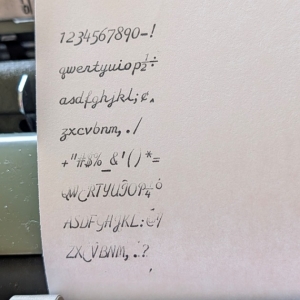 1234567890-!
qwertyuiop½÷
asdfghjkl;¢,
zxcvbnm,./
+"#$%_&'()*=
QWERTYUIOP¼
ASDFGHJKL:@
ZXCVBNM,.?